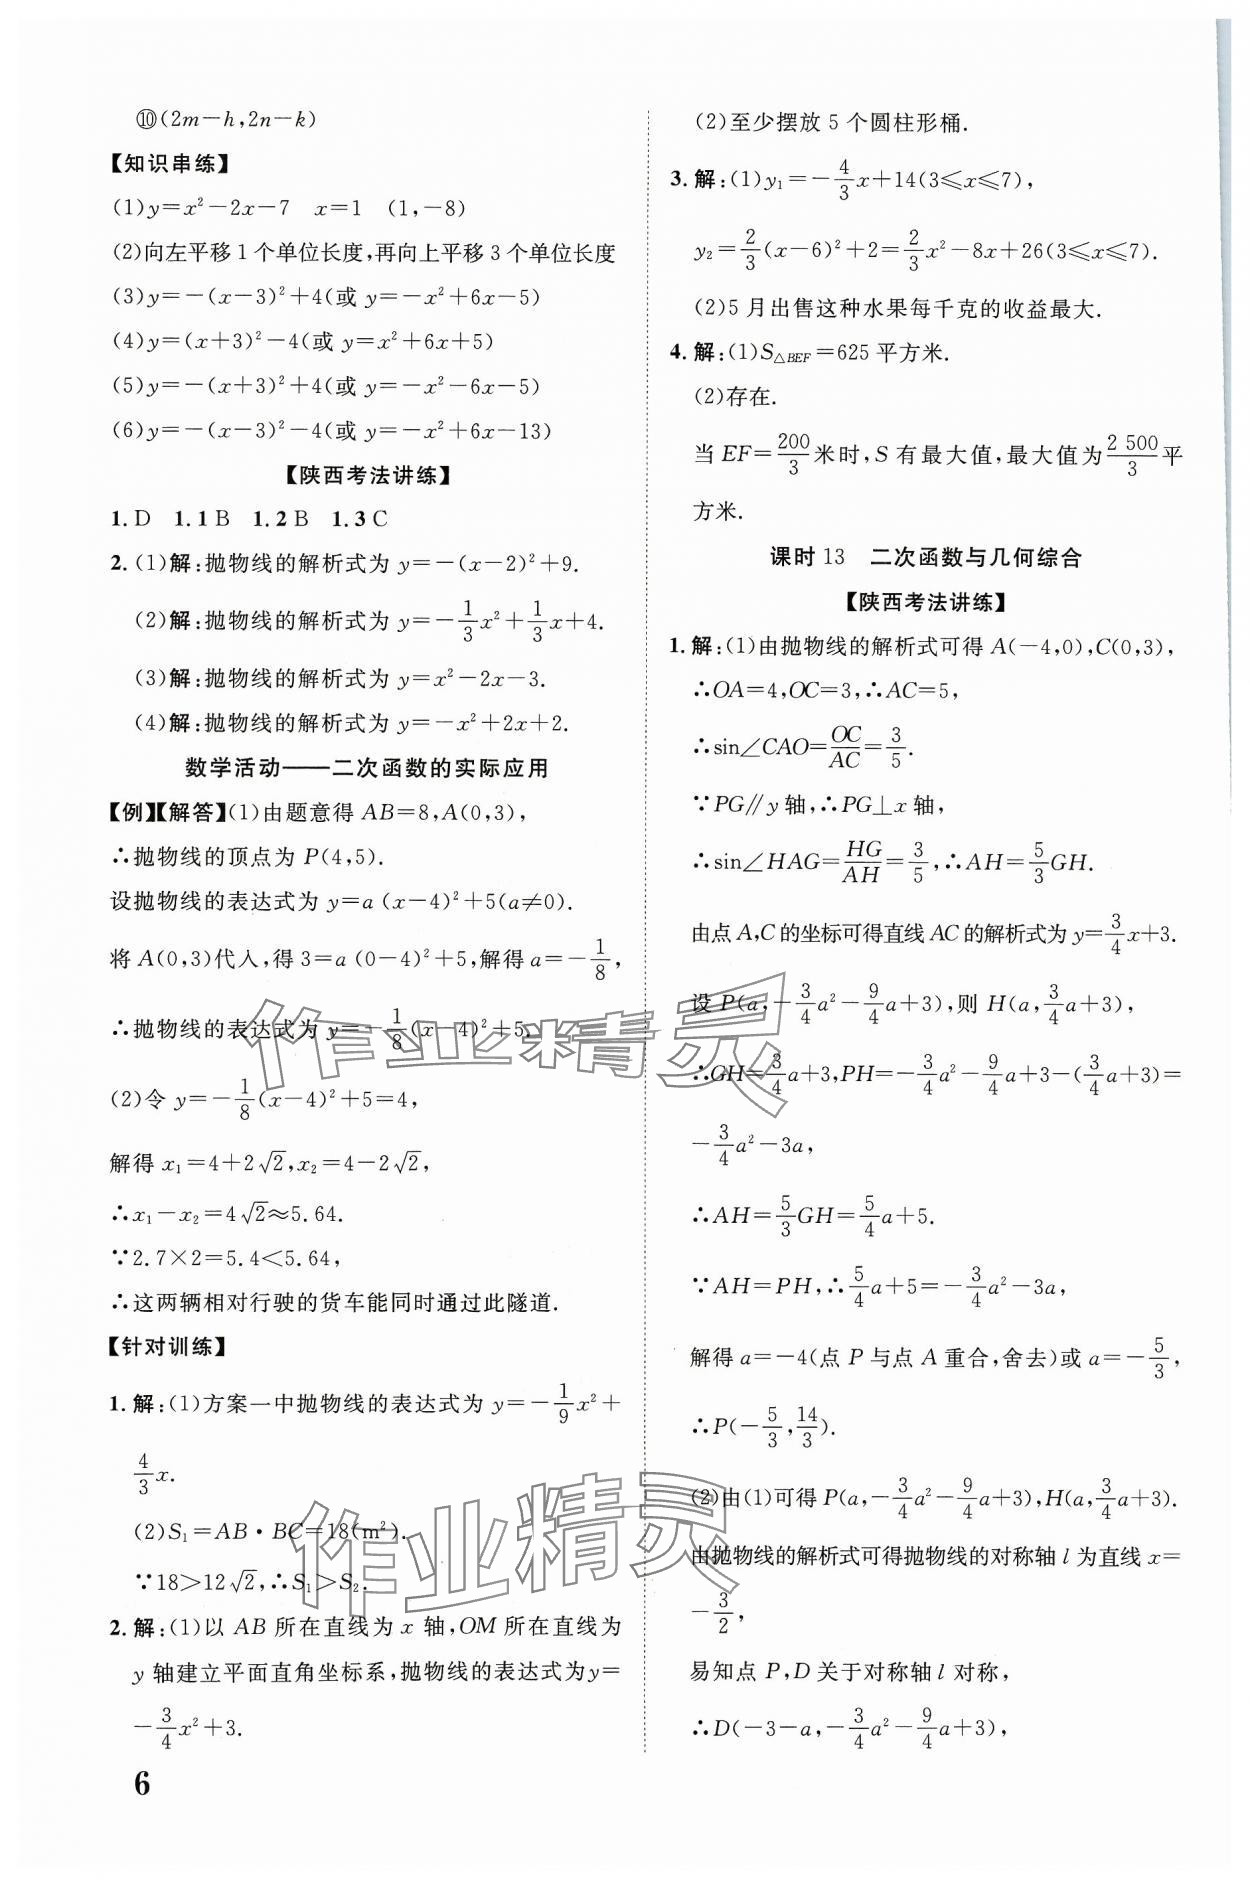 ⑩(2m－h,2n－k)
【知识串练】
(1)y＝x²－2x－7　x＝1　(1,－8)
(2)向左平移1个单位长度,再向上平移3个单位长度
(3)y＝－(x－3)²＋4(或 y＝－x²＋6x－5)
(4)y＝(x＋3)²－4(或 y＝x²＋6x＋5)
(5)y＝－(x＋3)²＋4(或 y＝－x²－6x－5)
(6)y＝－(x－3)²－4(或 y＝－x²＋6x－13)
【陕西考法讲练】
1.D　1.1 B　1.2 B　1.3 C
2.(1)解:抛物线的解析式为 y＝－(x－2)²＋9.
(2)解:抛物线的解析式为 y＝－1/3x²＋1/3x＋4.
(3)解:抛物线的解析式为 y＝x²－2x－3.
(4)解:抛物线的解析式为 y＝－x²＋2x＋2.
数学活动——二次函数的实际应用
【例】【解答】(1)由题意得 AB＝8,A(0,3),
∴抛物线的顶点为 P(4,5).
设抛物线的表达式为 y＝a (x－4)²＋5(a≠0).
将 A(0,3)代人,得 3＝a (0－4)²＋5,解得 a＝－1/8,
∴抛物线的表达式为 y＝－1/8(x－4)²＋5.
(2)令 y＝－1/8(x－4)²＋5＝4,
解得 x₁＝4＋2√2,x₂＝4－2√2,
∴x₁－x₂＝4√2≈5.64.
∵2.7×2＝5.4＜5.64,
∴这两辆相对行驶的货车能同时通过此隧道.
【针对训练】
1.解:(1)方案一中抛物线的表达式为 y＝－1/9x²＋
4/3x.
(2)S₁＝AB·BC＝18(m²).
∵18＞12√2,∴S₁＞S₂.
2.解:(1)以 AB 所在直线为 x 轴,OM 所在直线为
y 轴建立平面直角坐标系,抛物线的表达式为y＝
－3/4x²＋3.
6
(2)至少摆放 5 个圆柱形桶.
3.解:(1)y₁＝－4/3x＋14(3≤x≤7),
y₂＝2/3(x－6)²＋2＝2/3x²－8x＋26(3≤x≤7).
(2)5 月出售这种水果每千克的收益最大.
4.解:(1)S△BEF＝625 平方米.
(2)存在.
当 EF＝200/3米时,S 有最大值,最大值为2 500/3平
方米.
课时 13　二次函数与几何综合
【陕西考法讲练】
1.解:(1)由抛物线的解析式可得 A(－4,0),C(0,3),
∴OA＝4,OC＝3,∴AC＝5,
∴sin∠CAO＝OC/AC＝3/5.
∵PG∥y 轴,∴PG⊥x 轴,
∴sin∠HAG＝HG/AH＝3/5,∴AH＝5/3GH.
由点 A,C 的坐标可得直线 AC 的解析式为 y＝3/4x＋3.
设 P(a,－3/4a²－9/4a＋3),则 H(a,3/4a＋3),
∴GH＝3/4a＋3,PH＝－3/4a²－9/4a＋3－(3/4a＋3)＝
－3/4a²－3a,
∴AH＝5/3GH＝5/4a＋5.
∵AH＝PH,∴5/4a＋5＝－3/4a²－3a,
解得 a＝－4(点 P 与点 A 重合,舍去)或 a＝－5/3,
∴P(－5/3,14/3).
(2)由(1)可得 P(a,－3/4a²－9/4a＋3),H(a,3/4a＋3).
由抛物线的解析式可得抛物线的对称轴 l 为直线 x＝
－3/2,
易知点 P,D 关于对称轴 l 对称,
∴D(－3－a,－3/4a²－9/4a＋3),
作业精灵
作业精灵